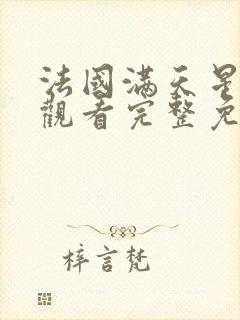 法國滿天星
觀看完整免
梓言梵